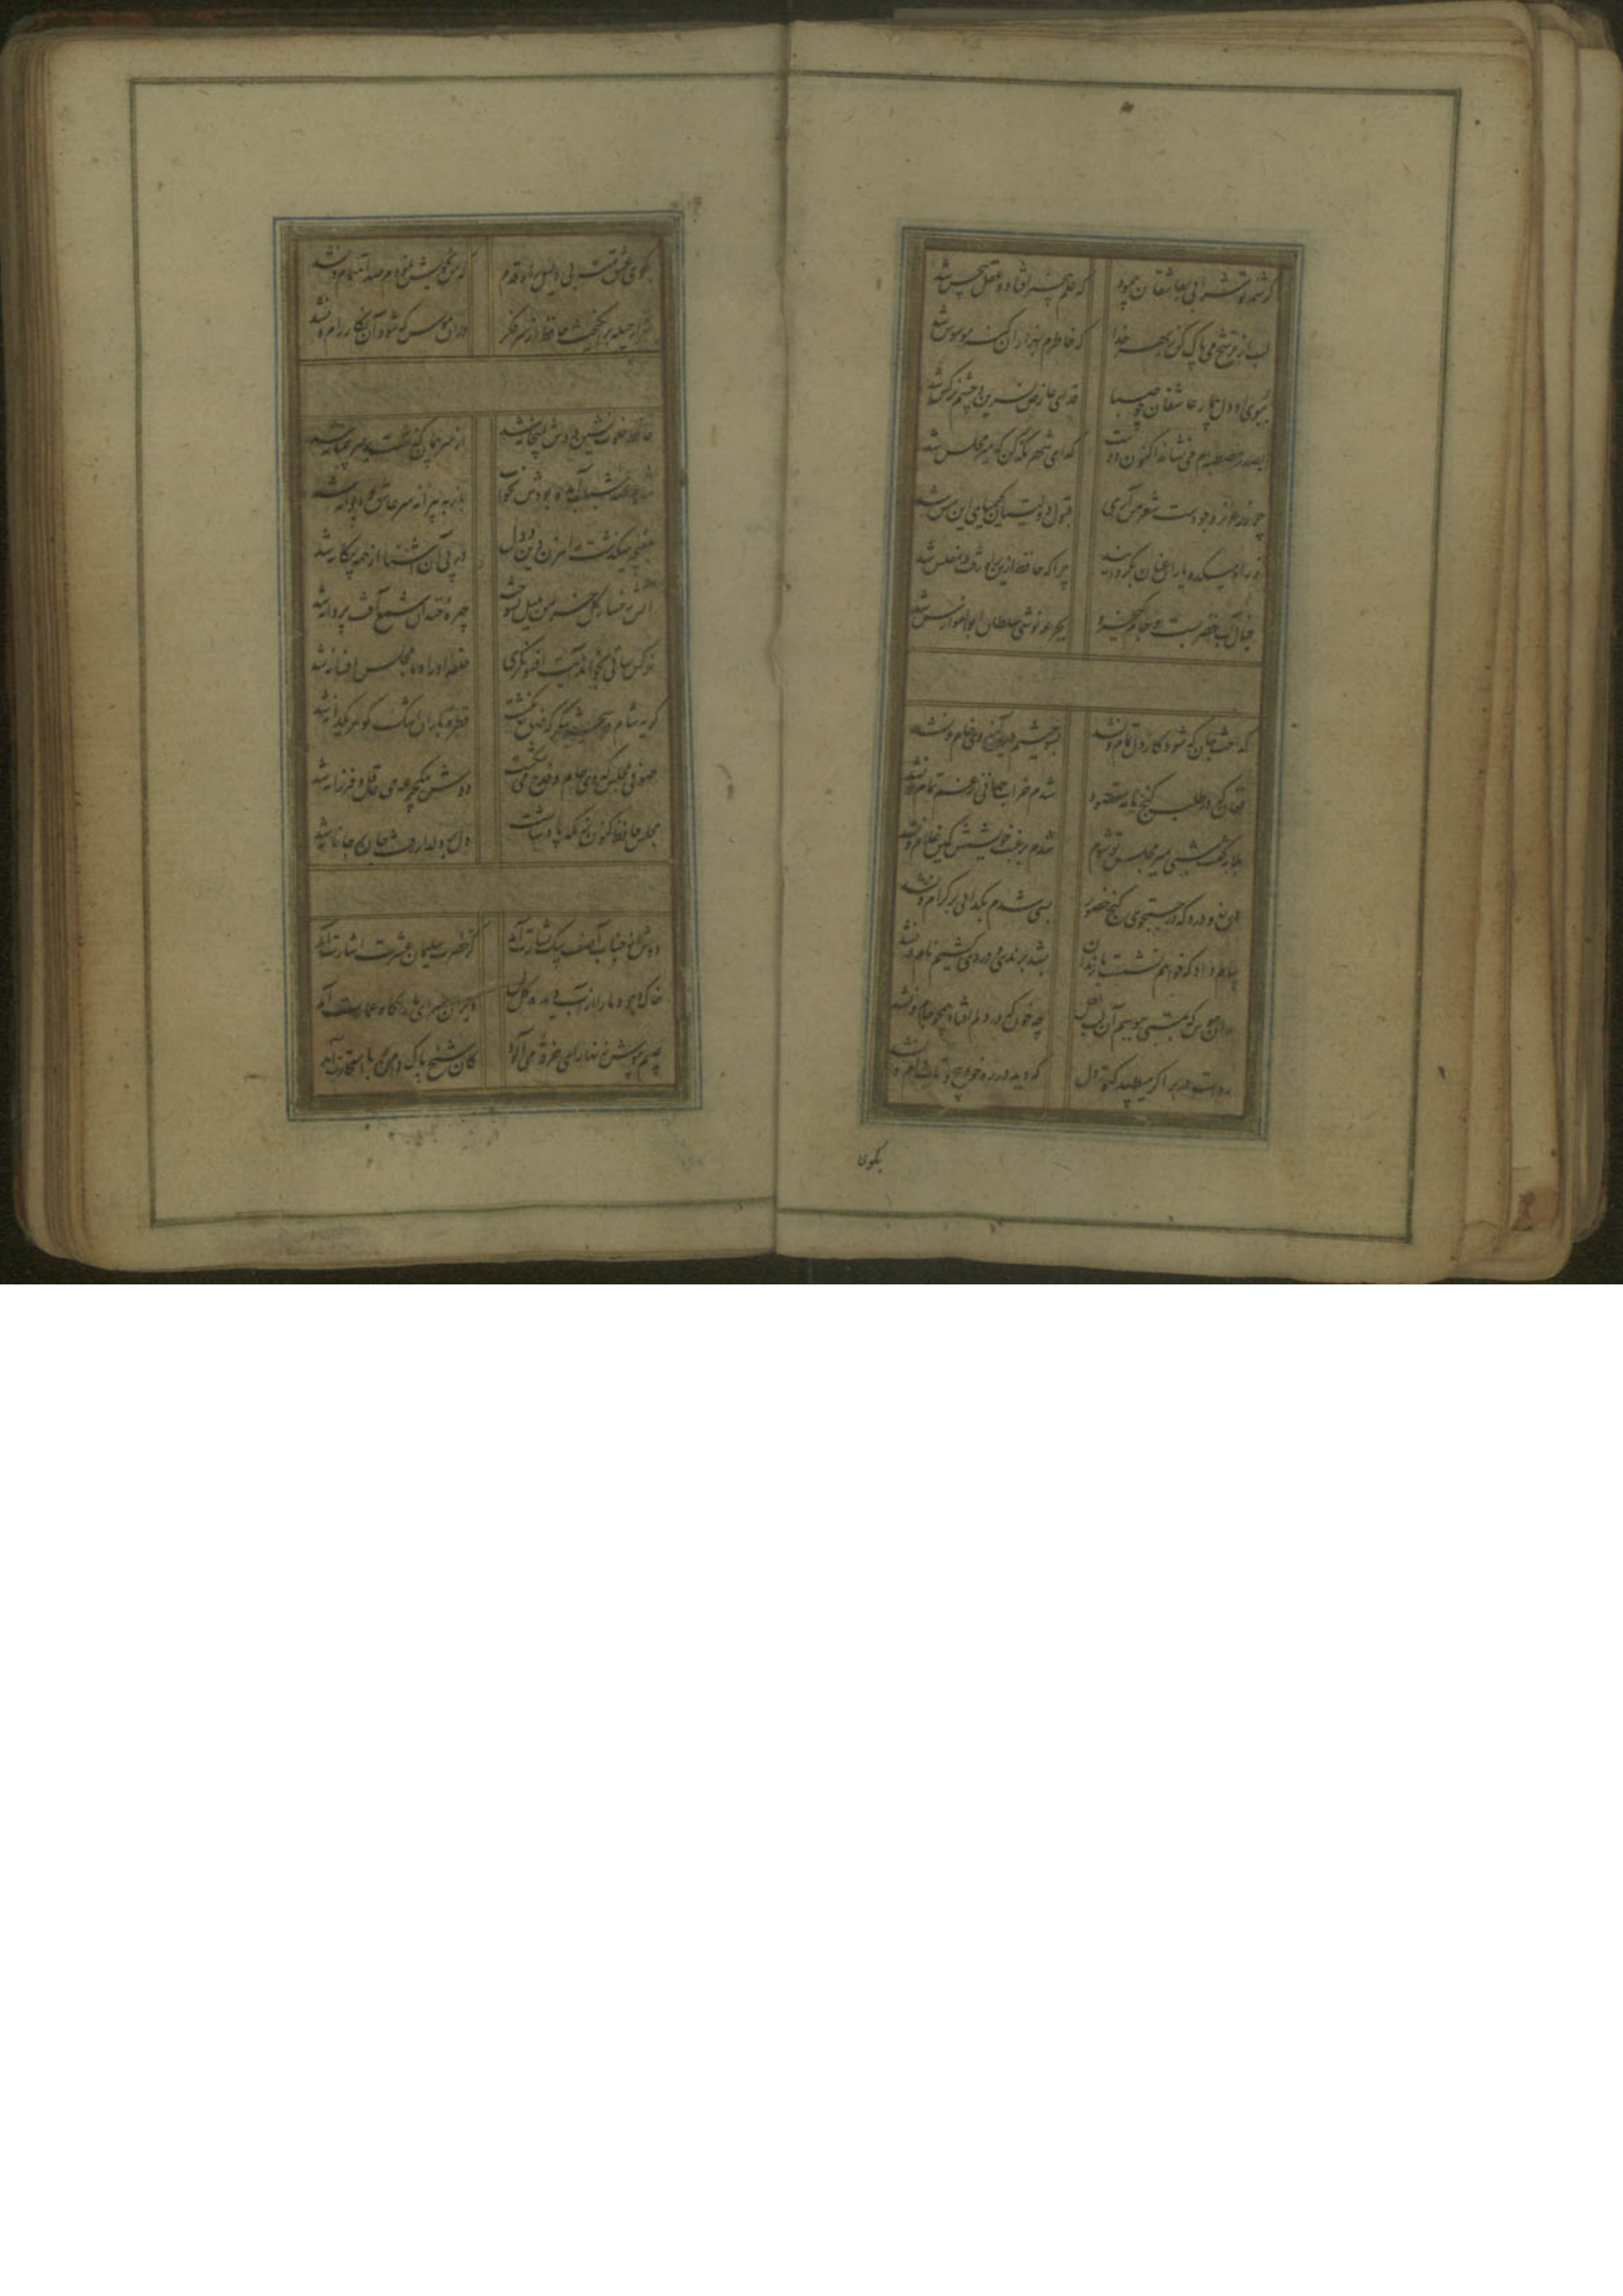 کرشمه تو شرابی بعاشقان پیمود که علم بیخبر افتاد و عقل بیحس شد
لب از ترشح می پاک کن بهر خدا که خاطرم بهزاران گنه موسوس شد
ببوی او دل بیمار عاشقان چو صبا فدای عارض نسرین و چشم نرگس شد
بصدر مصطبه ام می نشاند اکنون دوست گدای شهر نگه کن که میر مجلس شد
چو زر عزیز وجودست شعر من آری قبول دولتیان کیمیای این مس شد
ز راه میکده یاران عنان بگردانید چرا که حافظ ازین راه رفت و مفلس شد
خیال آب خضر بست و جام کیخسرو بجرعه نوشی سلطان ابوالفوارس شد
گداخت جان که شود کار دل تمام و نشد بسوختیم درین آرزوی خام و نشد
فغان که در طلب گنج نامه مقصود شدم خراب جهانی ز غم تمام و نشد
بلابه گفت شبی میر مجلس تو شوم شدم برغبت خویشش کمین غلام و نشد
دریغ و درد که در جستجوی گنج حضور بسی شدم بگدائی بر کرام و نشد
پیام داد که خواهم نشست با رندان بشد برندی و دردی کشیم نام و نشد
بدان هوس که بمستی ببوسم آن لب لعل چه خون که در دلم افتاد همچو جام و نشد
رواست در بر اگر میطپد کبوتر دل که دید در ره خود پیچ و تاب دام و نشد
بکوی
بکوی عشق منه بی دلیل راه قدم که من بخویش نمودم صد اهتمام و نشد
هزار حیله برانگیخت حافظ از سر فکر در آن هوس که شود آن نگار رام و نشد
حافظ خلوت نشین دوش بمیخانه شد از سر پیمان گذشت بر سر پیمانه شد
شاهد عهد شباب آمده بودش بخواب باز به پیرانه سر عاشق و دیوانه شد
مغبچه میگذشت راهزن دین و دل در پی آن آشنا از همه بیگانه شد
آتش رخسار گل خرمن بلبل بسوخت چهره خندان شمع آفت پروانه شد
نرگس ساقی بخواند آیت افسونگری حلقه اوراد ما مجلس افسانه شد
گریه شام و سحر شکر که ضایع نگشت قطره باران اشک گوهر یکدانه شد
صوفی مجلس که دی جام و قدح می شکست دوش بیک جرعه می عاقل و فرزانه شد
مجلس حافظ کنون بزمگه پادشاست دل بر دلدار رفت جان بر جانانه شد
دوش از جناب آصف پیک بشارت آمد کز حضرت سلیمان عشرت اشارت آمد
خاک وجود ما را از آب دیده گل کن ویران سرای دل را گاه عمارت آمد
عیبم بپوش زنهار ای خرقه می آلود کان شیخ پاک دامن با استخارت آمد